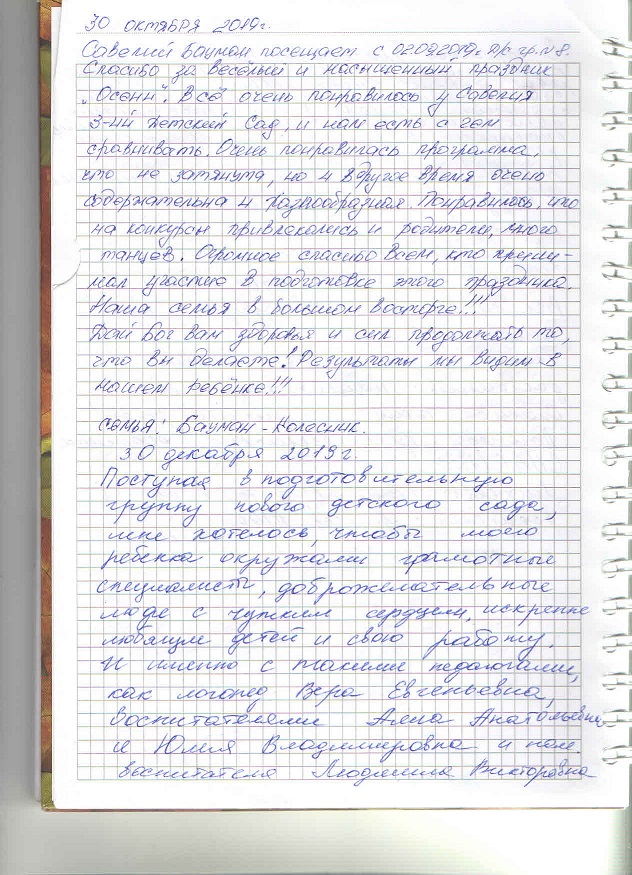 30 октября 2019г.
Савелий Бауман посещает с 02.09.2019г. д/с гр. №8.
Спасибо за весёлый и насыщенный праздник
"Осени". Всё очень понравилось у Савелия
3-ий детский сад, и нам есть с чем
сравнивать. Очень понравилась программа,
что не затянута, но и в другое время очень
содержательна и разнообразная. Понравилось, что
на конкурсы привлекались и родители, много
танцев. Огромное спасибо всем, кто прини-
мал участие в подготовке этого праздника.
Наша семья в большом восторге!!!
Дай Бог вам здоровья и сил продолжать то,
что вы делаете! Результаты мы видим в
нашем ребёнке!!!
семья: Бауман-Колесник.
30 декабря 2019 г.
Поступая в подготовительную
группу нового детского сада,
мне хотелось, чтобы моего
ребенка окружали грамотные
специалисты, доброжелательные
люди с чутким сердцем, искренне
любящие детей и свою работу.
И именно с такими педагогами,
как логопед Вера Евгеньевна,
воспитателями Алена Анатольевна
и Юлия Владимировна и пом.
воспитателя Людмила Викторовна